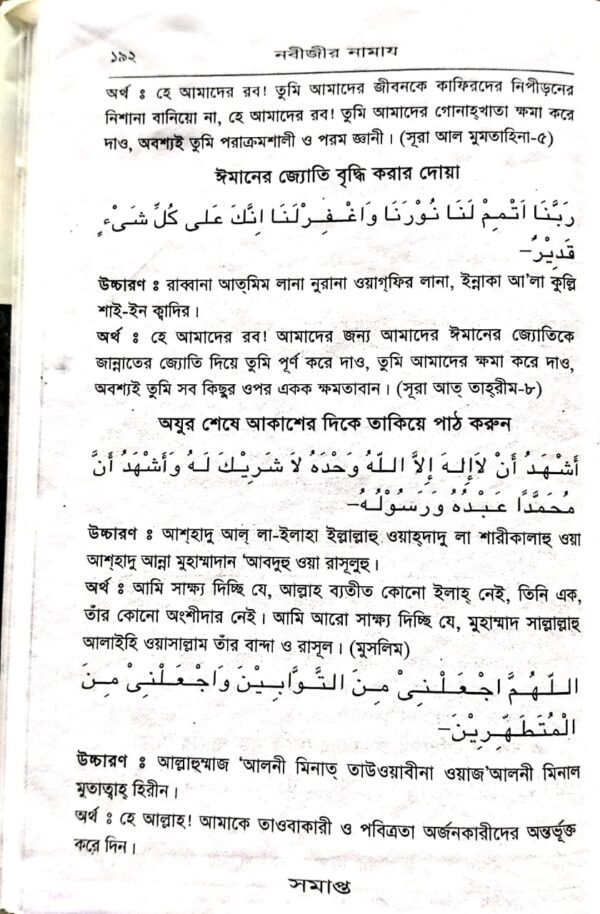 ১৯২ নবীজীর নামায
অর্থ ঃ হে আমাদের রব! তুমি আমাদের জীবনকে কাফিরদের নিপীড়নের
নিশানা বানিয়ো না, হে আমাদের রব! তুমি আমাদের গোনাহ্খাতা ক্ষমা করে
দাও, অবশ্যই তুমি পরাক্রমশালী ও পরম জ্ঞানী। (সূরা আল মুমতাহিনা-৫)
ঈমানের জ্যোতি বৃদ্ধি করার দোয়া
رَبَّنَا اَتْمِمْ لَنَا نُوْرَنَا وَاغْفِرْلَنَا اِنَّكَ عَلٰى كُلِّ شَىْءٍ
قَدِيْرٌ–
উচ্চারণ ঃ রাব্বানা আত্মিম লানা নুরানা ওয়াগ্ফির লানা, ইন্নাকা আ'লা কুল্লি
শাই-ইন ক্বাদির।
অর্থ ঃ হে আমাদের রব! আমাদের জন্য আমাদের ঈমানের জ্যোতিকে
জান্নাতের জ্যোতি দিয়ে তুমি পূর্ণ করে দাও, তুমি আমাদের ক্ষমা করে দাও,
অবশ্যই তুমি সব কিছুর ওপর একক ক্ষমতাবান। (সূরা আত্ তাহ্রীম-৮)
অযুর শেষে আকাশের দিকে তাকিয়ে পাঠ করুন
أَشْهَدُ أَنْ لاَإِلهَ إِلاَّ اللّهُ وَحْدَهُ لاَ شَرِيْكَ لَهُ وَأَشْهَدُ أَنَّ
مُحَمَّدًا عَبْدُهُ وَرَسُوْلُهُ–
উচ্চারণ ঃ আশ্হাদু আল্ লা-ইলাহা ইল্লাল্লাহু ওয়াহ্দাদু লা শারীকালাহু ওয়া
আশ্হাদু আন্না মুহাম্মাদান 'আবদুহু ওয়া রাসূলুহু।
অর্থ ঃ আমি সাক্ষ্য দিচ্ছি যে, আল্লাহ ব্যতীত কোনো ইলাহ্ নেই, তিনি এক,
তাঁর কোনো অংশীদার নেই। আমি আরো সাক্ষ্য দিচ্ছি যে, মুহাম্মাদ সাল্লাল্লাহু
আলাইহি ওয়াসাল্লাম তাঁর বান্দা ও রাসূল। (মুসলিম)
اللّهُمَّ اجْعَلْنِىْ مِنَ التَّوَّابِيْنَ وَاجْعَلْنِىْ مِنَ
الْمُتَطَهِّرِيْنَ–
উচ্চারণ ঃ আল্লাহুম্মাজ 'আলনী মিনাত্ তাউওয়াবীনা ওয়াজ'আলনী মিনাল
মুতাত্বাহ্ হিরীন।
অর্থ ঃ হে আল্লাহ! আমাকে তাওবাকারী ও পবিত্রতা অর্জনকারীদের অন্তর্ভূক্ত
করে দিন।
সমাপ্ত